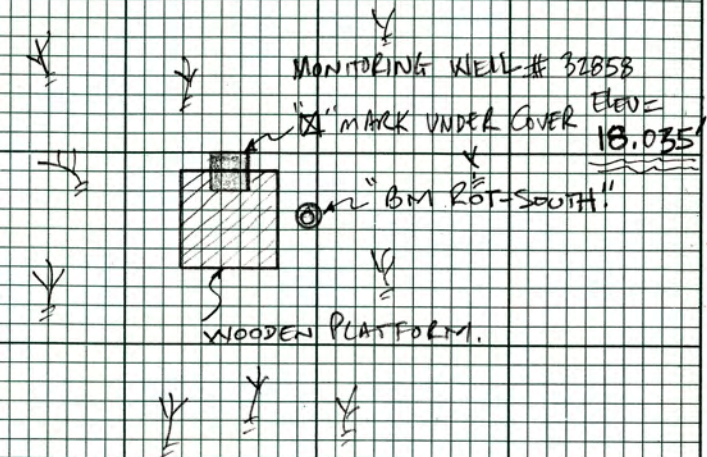 MONITORING WELL # 32858
"X" MARK UNDER COVER ELEV =
18.035'
"BM ROT-SOUTH."
WOODEN PLATFORM.